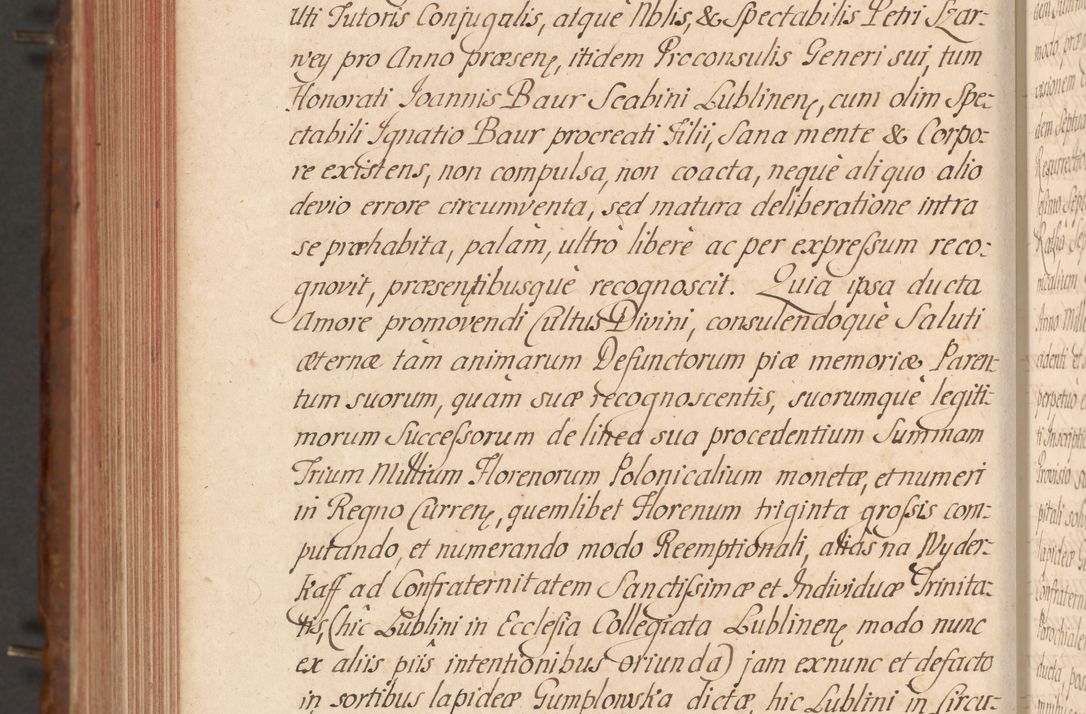 uti Tutoris Conjugalis, atquè Nblis, & Spectabilis Petri Szar-
wey pro Anno præsenţ, itidem Proconsulis Generi sui, tum
Honorati Joannis Baur Scabini Lublinenţ, cum olim Spe-
ctabili Ignatio Baur procreati Filii, Sana mente & Corpo-
re existens, non compulsa, non coacta, nequè aliquo alio
devio errore circumventa, sed matura deliberatione intra
se præhabita, palàm, ultrò liberè ac per expreſsum reco-
gnovit, præsentibusquè recognoscit. Quia ipsa ducta
Amore promovendi Cultus Divini, consulendoquè Saluti
æternæ tàm animarum Defunctorum piæ memoriæ Paren-
tum suorum, quàm suæ recognoscentis, suorumquè legiti-
morum Succeſsorum de linea sua procedentium Summam
Trium Millium Florenorum Polonicalium monetæ, et numeri
in Regno Currenţ, quemlibet Florenum triginta groſsis com-
putando, et numerando modo Reemptionali, aliàs na Wyder-
kaff ad Confraternitatem Sanctiſsimæ et Individuæ Trinita-
tis, (hìc Lublini in Eccleſia Collegiata Lublinenţ modo nunc
ex aliis piis intentionibus oriunda) jam exnunc et defacto
in sortibus lapideæ Gumplowska dictæ, hic Lublini in Circu-